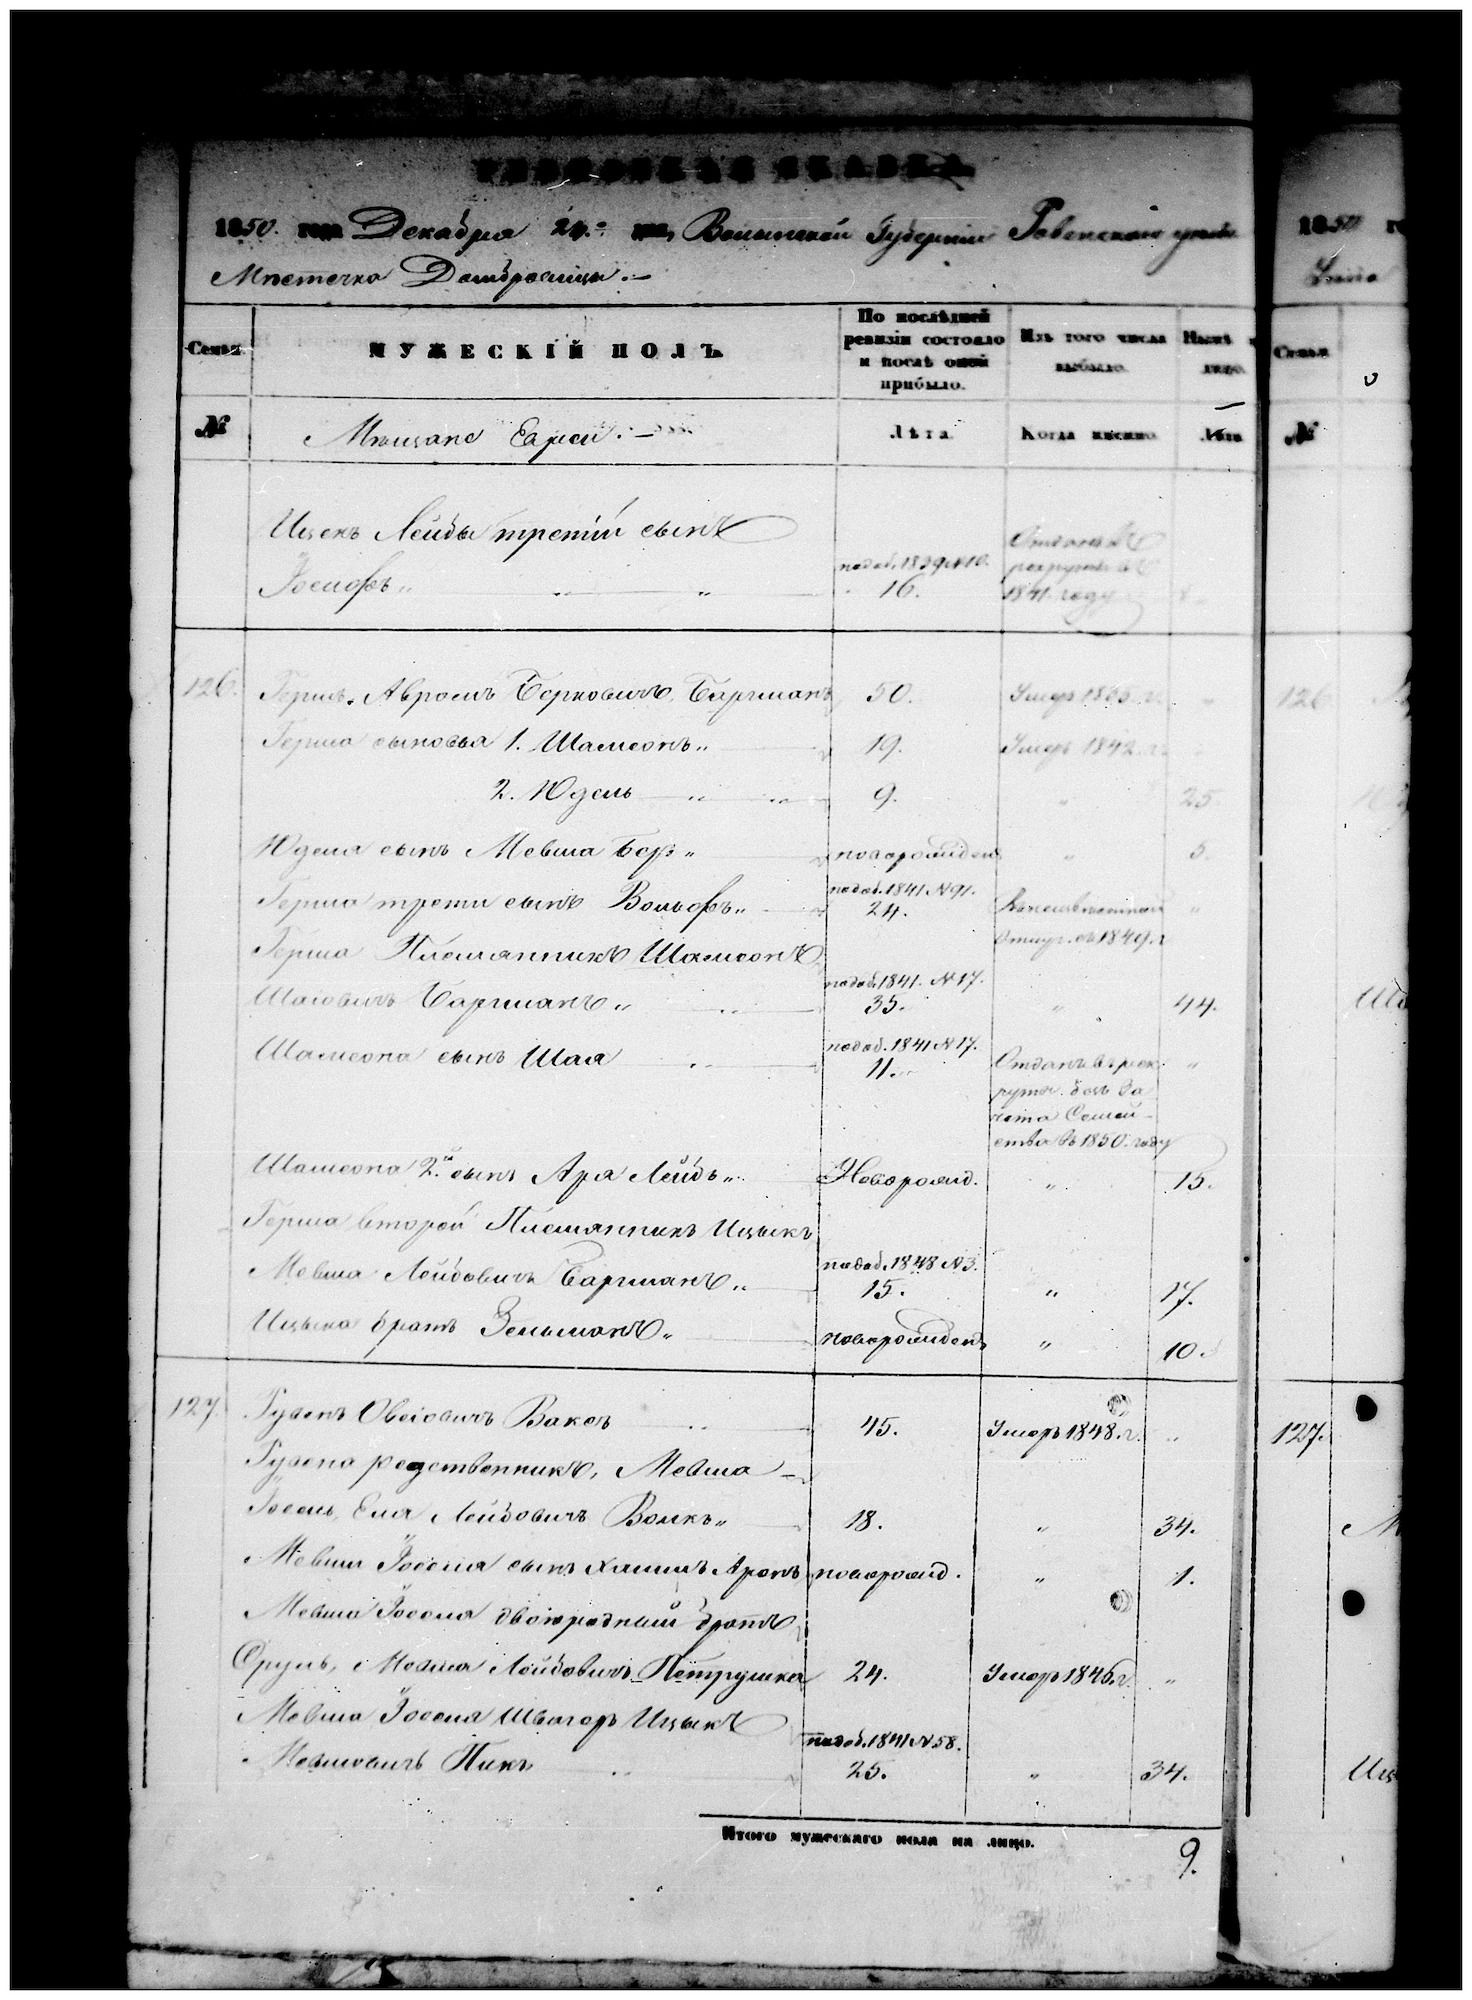 РЕВИЗСКАЯ СКАЗКА
1850 года Декабря 24.го дня, Волынской Губернии Ровенского уезда
Местечка Домбровицы.—
Семьи МУЖЕСКІЙ ПОЛЪ. По послѣдней ревизіи состояло и послѣ оной прибыло. Изъ того числа выбыло. Нынѣ на лицо.
№ Мещане Евреи.— Лѣта. Когда имянно. Лѣта
Ицекъ Лейбы третій сынъ
Іосифъ „ „ „ подоб. 1839 №10. 16. Отданъ въ рекруты въ 1841. году „
126. Гершъ, Авромъ Берковичъ, Бариманъ 50. Умеръ 1835. г. „
Герша сыновья 1. Шамсонъ „ 19. Умеръ 1842. г. „
2. Юдель „ „ 9. „ 25.
Юделя сынъ Мевша Бер „ новорожденъ „ 5.
Герша трети сынъ Вольфъ „ подоб. 1841 №91. 24. въ 1849. г „
Герша Племянникъ Шамсонъ
Шаговичъ Бариманъ „ „ подоб. 1841. №17. 35. „ 44.
Шамсона сынъ Шая „ подоб. 1841 №17. 11. Отданъ въ рекруты. безъ зачета Семейства въ 1850. году „
Шамсона 2.й сынъ Ара Лейбъ „ Новорожд. „ 15.
Герша второй Племянникъ Ицыкъ
Мевша Лейбовичъ Бариманъ „ подоб. 1848 №3. 15. „ 17.
Ицыка братъ Зельманъ „ новорожденъ „ 10.
127. Рувенъ Овсіовичъ Вакъ „ 45. Умеръ 1848. г. „
Рувена родственникъ, Мевша —
Іосель, Еля Лейбовичъ Волкъ „ 18. „ 34.
Мевши Іоселя сынъ Хаимъ Аронъ новорожд. „ 1.
Мевша Іоселя двоюродный братъ
Срулъ, Мевша Лейбовичъ Петрушка 24. Умеръ 1846. г. „
Мевша Іоселя Швагоръ Ицыкъ
Мевшовичъ Пикъ „ подоб. 1841 №58. 25. „ 34.
Итого мужескаго пола на лицо. 9.
1850 го
Семьи
№
126
127.